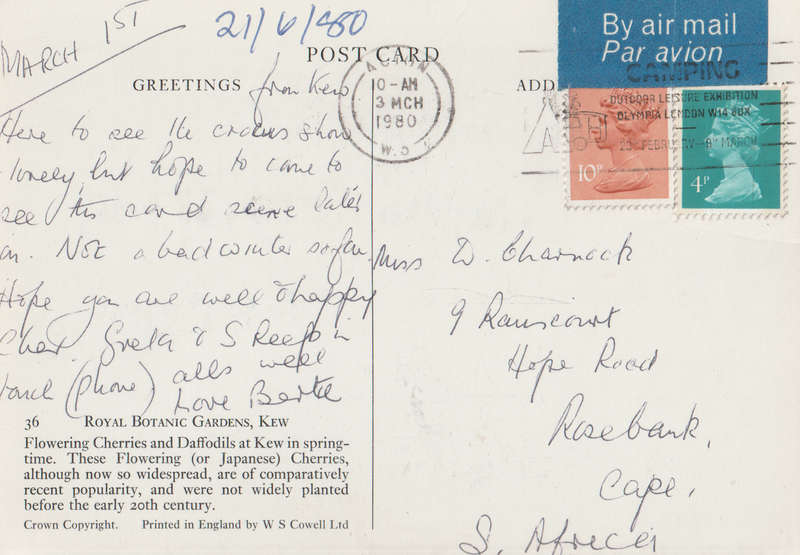 MARCH 1ST
21/6/1980
By air mail
Par avion
POST CARD
GREETINGS from Kew
ADD
ACTON
10-AM
3 MCH
1980
W.3
CAMPING
OUTDOOR LEISURE EXHIBITION
OLYMPIA LONDON W14 8UX
FEBRUARY MARCH
10P
4P
Here to see the crocus show
- lovely, but hope to come to
see this card scene later
on. Not a bad winter so far.
Hope you are well & happy
Greta & S Keep in
touch (phone) alls well
Love
Miss D. Charnock
9 Ramscourt
Hope Road
Rosebank,
Cape,
S. Africa
36 ROYAL BOTANIC GARDENS, KEW
Flowering Cherries and Daffodils at Kew in spring-
time. These Flowering (or Japanese) Cherries,
although now so widespread, are of comparatively
recent popularity, and were not widely planted
before the early 20th century.
Crown Copyright. Printed in England by W S Cowell Ltd